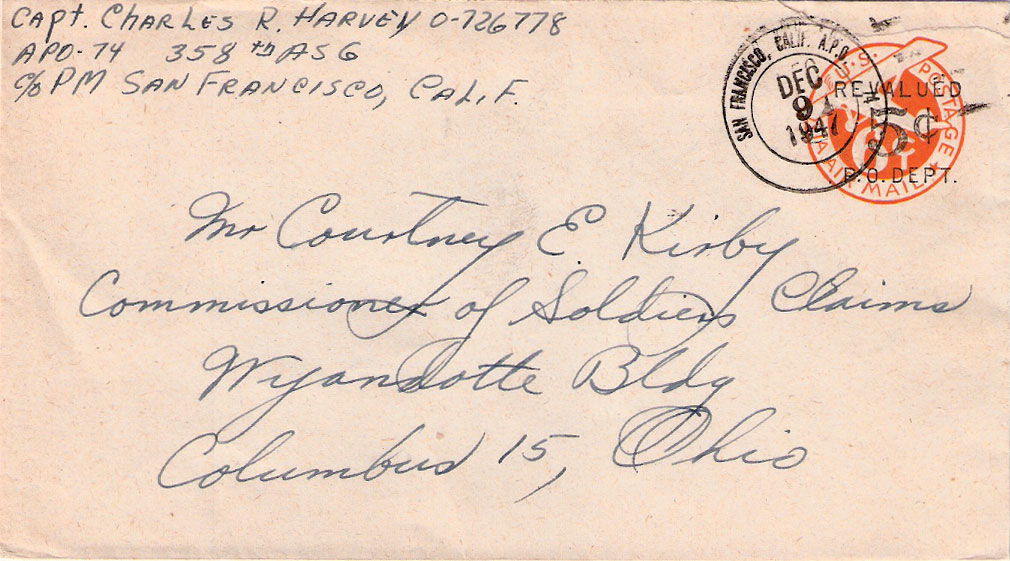 Capt. Charles R. Harvey O-726778
APO-74 358th ASG
c/o PM San Francisco, Calif.
SAN FRANCISCO, CALIF. A.P.O.
DEC
9
1947
U.S. POSTAGE
VIA AIR MAIL
6¢
REVALUED
5¢
P.O. DEPT.
Mr Courtney E. Kirby
Commissioner of Soldiers Claims
Wyandotte Bldg
Columbus 15, Ohio